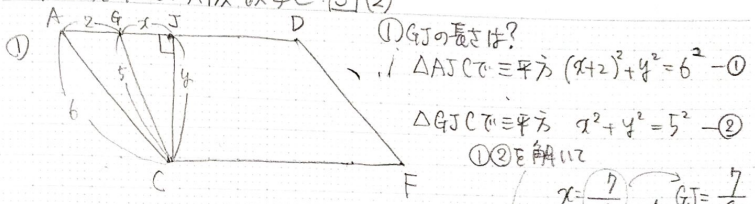 A 2 G x J D
①
6 5 y
C F
①GJの長さは?
△AJCで三平方 (x+2)²+y²=6² -①
△GJCで三平方 x²+y²=5² -②
①②を解いて
x=7 GJ=7